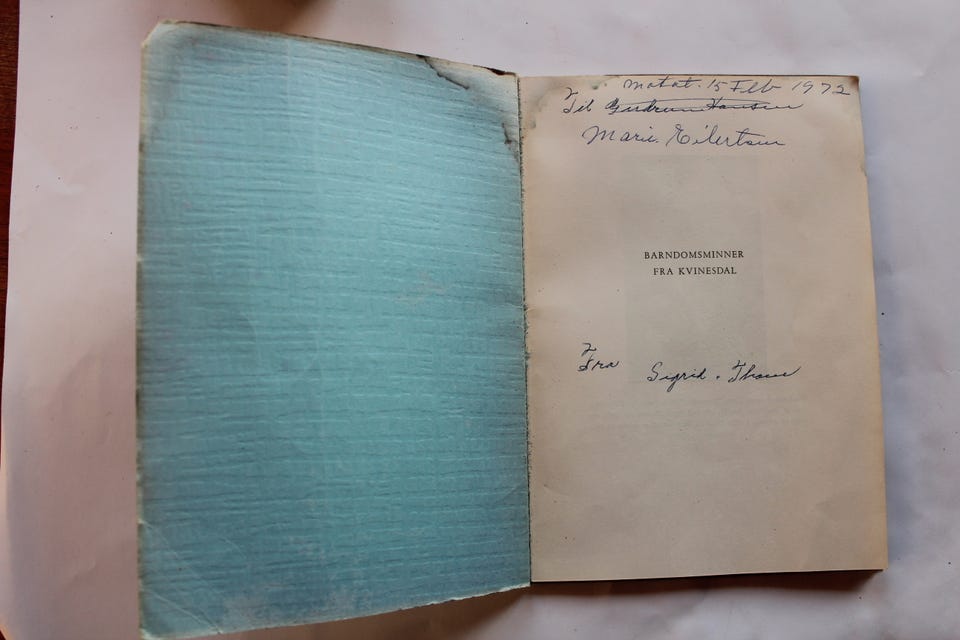 Motat. 15 Feb 1972
Til Gudrun Hansen
Marie. Eilertsen
BARNDOMSMINNER
FRA KVINESDAL
Fra Sigrid. Thom